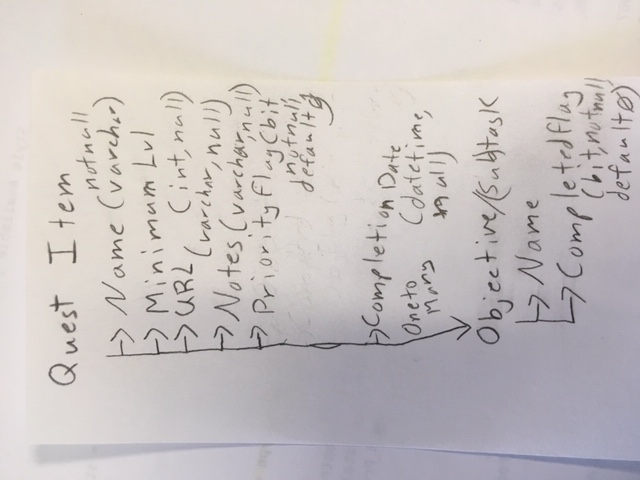 Quest Item
notnull
Name (varchar)
Minimum Lvl
URL (int, null)
(varchar, null)
Notes (varchar, null)
PriorityFlag (bit
notnull,
default 0)
Completion Date
One to (datetime,
Many null)
Objective/(Sub)task
Name
Completedflag
(bit, notnull
default 0)